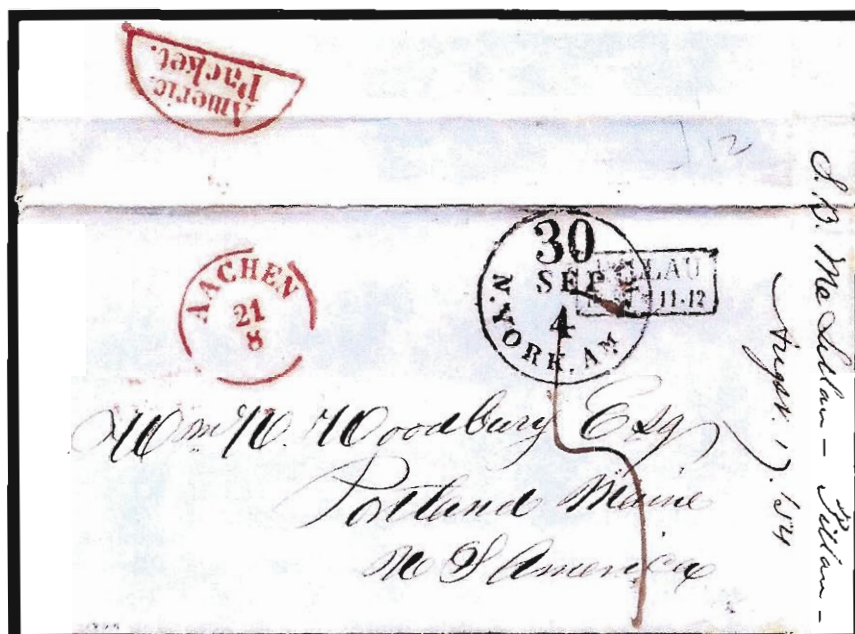 Americ.
Packet.
12
AACHEN
21
8
30
SEP
4
N. YORK. AM. PKT.
LLAU
11-12
Wm W. Woodbury Esq
Portland Maine
America
S. B. McLellan - Pillau -
Augst. 17. 1854